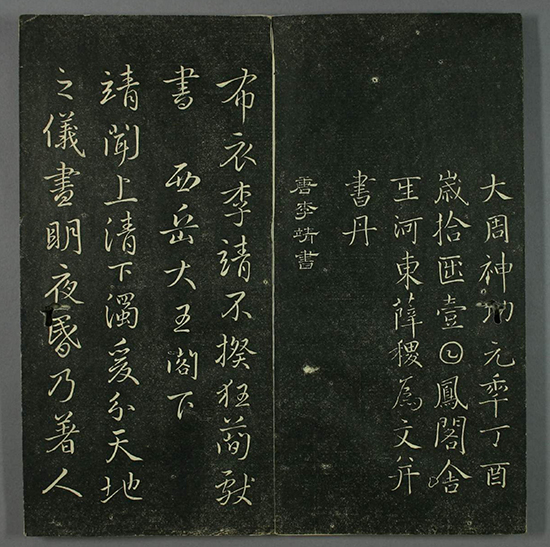 大周神功元秊丁酉
歲拾𠥱壹𡆠鳳閣舍
𤯔河東薛稷為文并
書丹
唐李靖書
布衣李靖不揆狂簡獻
書 西岳大王閣下
靖聞上清下濁爰分天地
之儀晝明夜昏乃著人